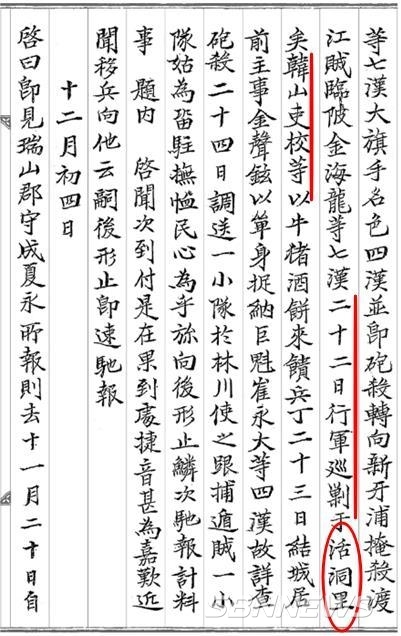 等七漢大旗手名色四漢並卽砲殺轉向新牙浦掩殺渡
江賊臨陂金海龍等七漢二十二日行軍巡剿于活洞里
矣韓山吏校等以牛猪酒餅來饋兵丁二十三日結城居
前主事金聲鉉以單身捉納巨魁崔永大等四漢故詳查
砲殺二十四日調送一小隊於林川使之跟捕遁賊一小
隊姑為畱駐撫恤民心為乎旀向後形止鱗次馳報計料
事 題內 啓聞次到付是在果到處捷音甚為嘉歎近
聞移兵向他云嗣後形止卽速馳報
十二月初四日
啓曰卽見瑞山郡守成夏永所報則去十一月二十日自